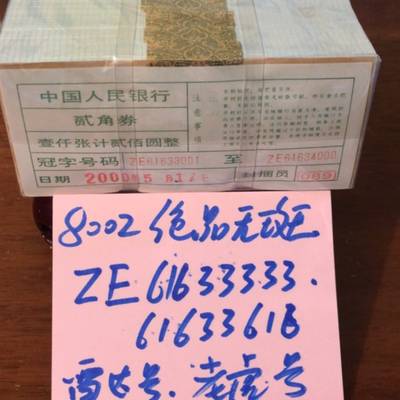 中国人民银行
贰角券
壹仟张计贰佰圆整
冠字号码 ZE61633001 至 ZE61634000
日期 2000年5月17日 封捆员 089
注意事项
8002绝品无斑
ZE61633333.
61633618
雷达号.老虎号